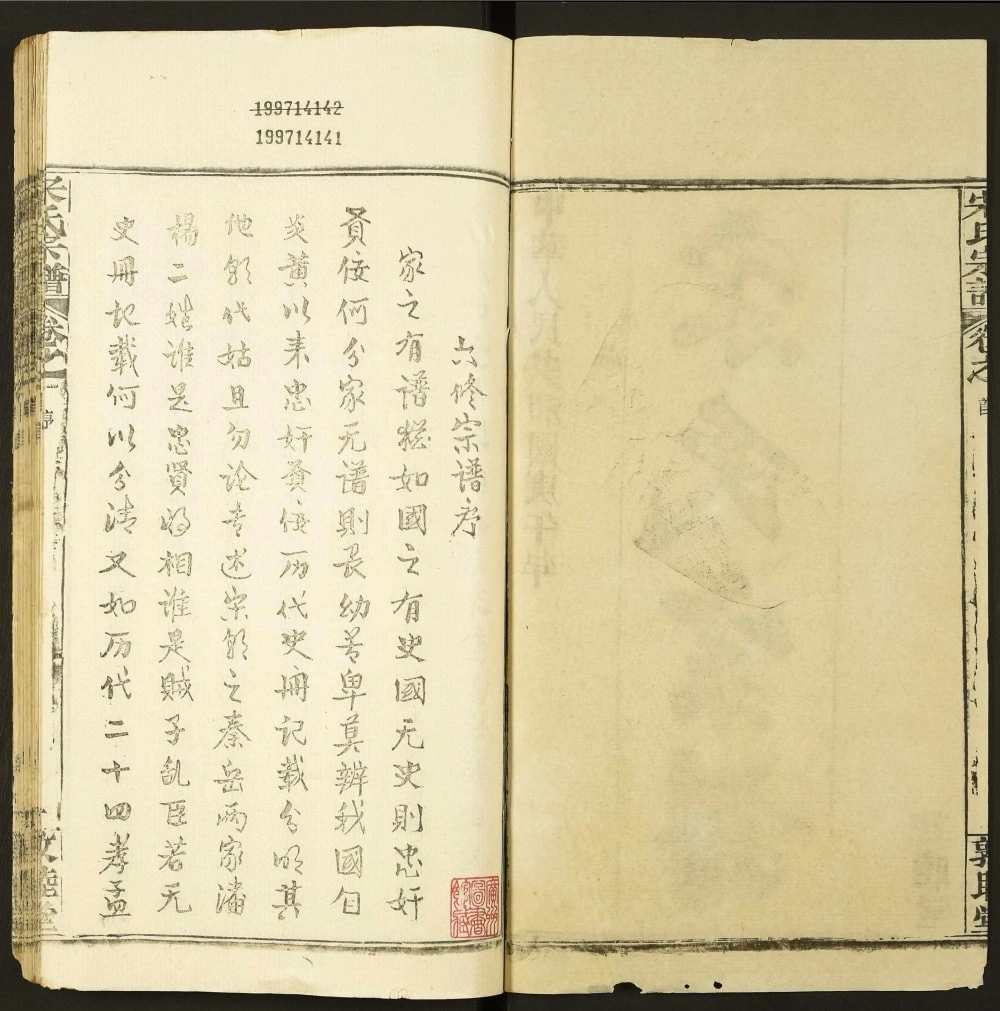 199714142
199714141
六修宗谱序
家之有谱犹如國之有史國无史则忠奸
贤佞何分家无谱则長幼尊卑莫辨我國自
炎黄以来忠奸贤佞历代史册记载分明其
他朝代姑且勿论专述宋朝之秦岳两家潘
楊二姓谁是忠贤将相谁是贼子乱臣若无
史册记载何以分清又如历代二十四孝孟
宋氏宗譜
卷之
敦睦堂
宋氏宗譜
卷之
首